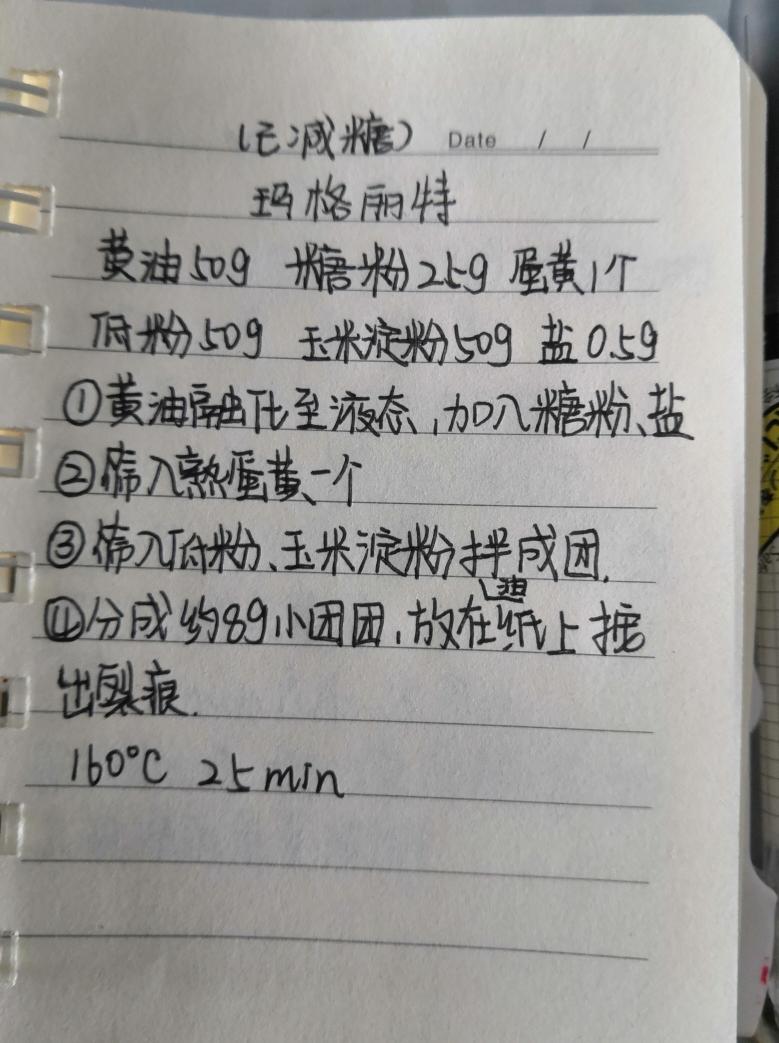 (已减糖) Date / /
玛格丽特
黄油50g 糖粉25g 蛋黄1个
低粉50g 玉米淀粉50g 盐0.5g
①黄油融化至液态,加入糖粉、盐
②筛入熟蛋黄一个
③筛入低粉、玉米淀粉拌成团.
④分成约8g小团团,放在油纸上按
出裂痕.
160°C 25min